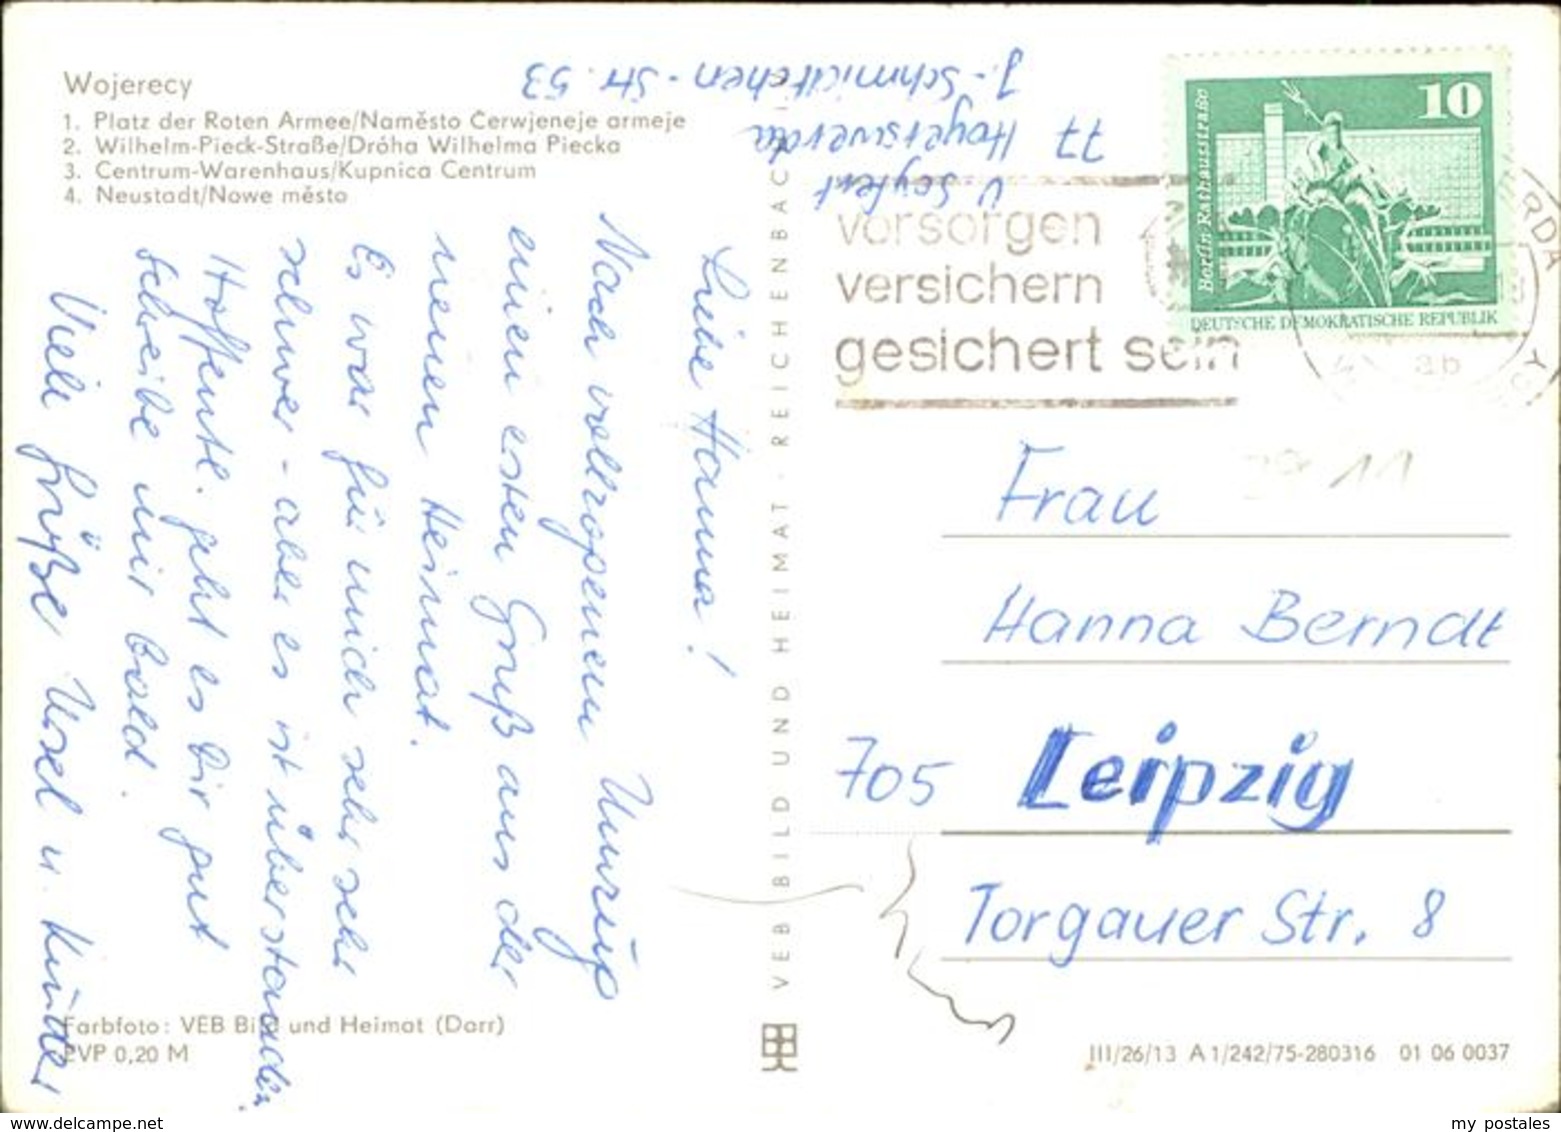 Wojerecy
1. Platz der Roten Armee/Naměsto Čerwjeneje armeje
2. Wilhelm-Pieck-Straße/Dróha Wilhelma Piecka
3. Centrum-Warenhaus/Kupnica Centrum
4. Neustadt/Nowe město
U. Seyfert
77 Hoyerswerda
J.-Schmidtchen-Str. 53
Liebe Hanna!
Nach vollzogenem Umzug
einen ersten Gruß aus der
neuen Heimat.
Es war für mich sehr sehr
schwer - aber es ist überstanden.
Hoffentl. geht es Dir gut
Schreibe mir bald.
Viele Grüße Ursel u. Kinder
Farbfoto: VEB Bild und Heimat (Darr)
EVP 0,20 M
VEB BILD UND HEIMAT · REICHENBACH
vorsorgen
versichern
gesichert sein
10
Berlin, Rathausstraße
DEUTSCHE DEMOKRATISCHE REPUBLIK
Frau
Hanna Berndt
705 Leipzig
Torgauer Str. 8
III/26/13 A 1/242/75-280316 01 06 0037
www.my-postales.com
my postales